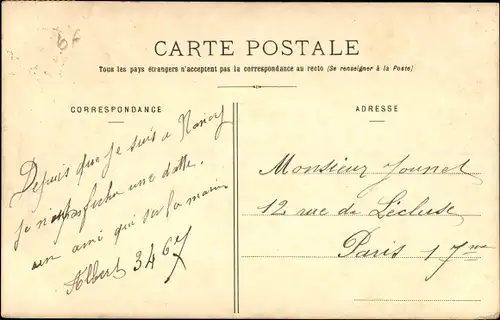 bf
CARTE POSTALE
Tous les pays étrangers n'acceptent pas la correspondance au recto (Se renseigner à la Poste)
CORRESPONDANCE
ADRESSE
Depuis que je suis a Nancy
je n'ai une datte.
un ami qui sur la main
Albert 3467
Monsieur Jounet
12 rue de L'écluse
Paris 17me